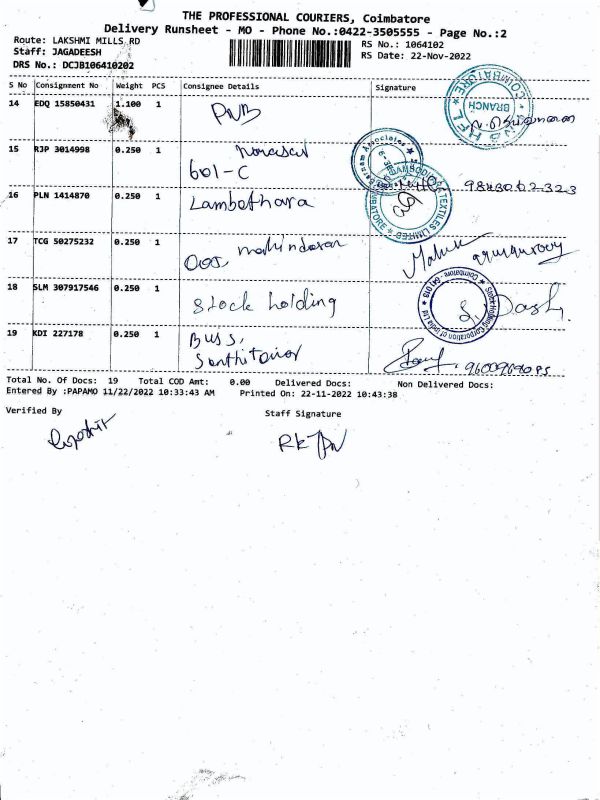 THE PROFESSIONAL COURIERS, Coimbatore
Delivery Runsheet - MO - Phone No.:0422-3505555 - Page No.:2
Route: LAKSHMI MILLS RD
RS No.: 1064102
Staff: JAGADEESH
RS Date: 22-Nov-2022
DRS No.: DCJB106410202
S No Consignment No Weight PCS Consignee Details Signature
14 EDQ 15850431 1.100 1 PNB
BRANCH COIMBATORE
15 RJP 3014998 0.250 1
601-C
Associates
16 PLN 1414870 0.250 1 Lambothara
TEXTILES LIMITED
17 TCG 50275232 0.250 1
18 SLM 307917546 0.250 1 Stock holding S. Dash
Stock Holding Corporation of India Ltd Coimbatore - 641 018
19 KDI 227178 0.250 1 BUSS,
Total No. Of Docs: 19 Total COD Amt: 0.00 Delivered Docs: Non Delivered Docs:
Entered By :PAPAMO 11/22/2022 10:33:43 AM Printed On: 22-11-2022 10:43:38
Verified By Staff Signature